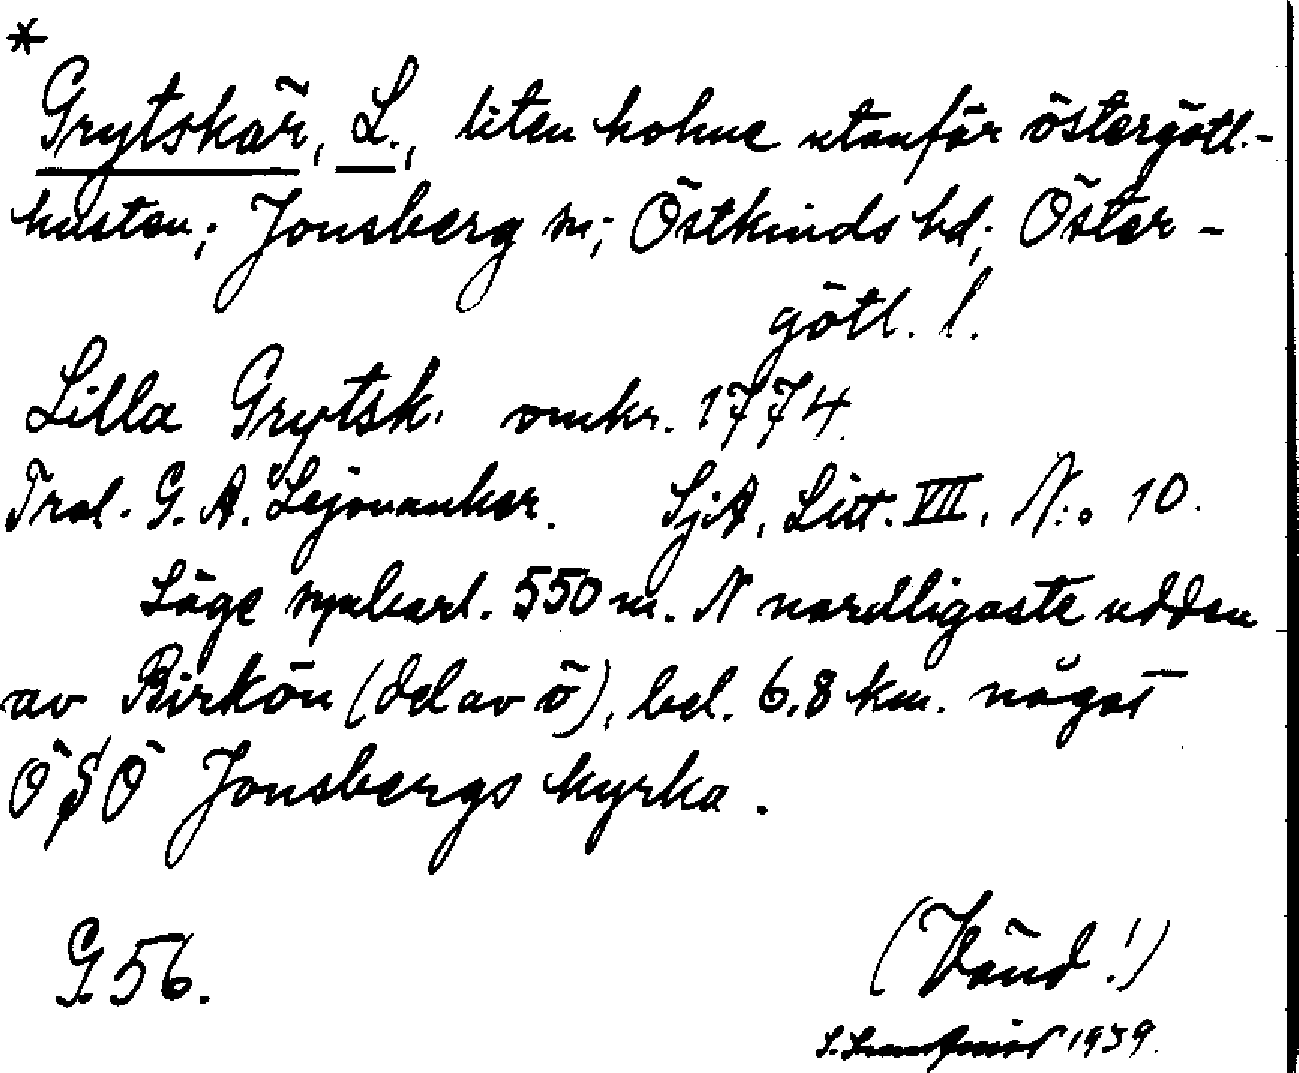 *
Grytskär, L., liten holme utanför östergötl.-
kusten; Jonsberg sn; Östkinds hd; Öster-
götl. l.
Lilla Grytsk. omkr. 1774.
Tral. G. A. Lejonanker. SjA, Litt. VIII, N:o 10.
Läge sjökart. 550 m. N nordligaste udden
av Birkön (del av ö), bel. 6,8 km. något
Ö § Ö Jonsbergs kyrka.
G. 56.
(Vänd!)
1939.